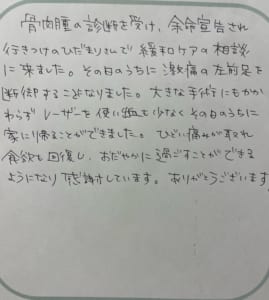 骨肉腫の診断を受け、余命宣告され
行きつけのひだまりさんで緩和ケアの相談
に来ました。その日のうちに激痛の左前足を
断脚することになりました。大きな手術にもかか
わらずレーザーを使い出血も少なくその日のうちに
家に帰ることができました。ひどい痛みが取れ
食欲も回復し、おだやかに過ごすことができる
ようになり感謝しています。ありがとうございます